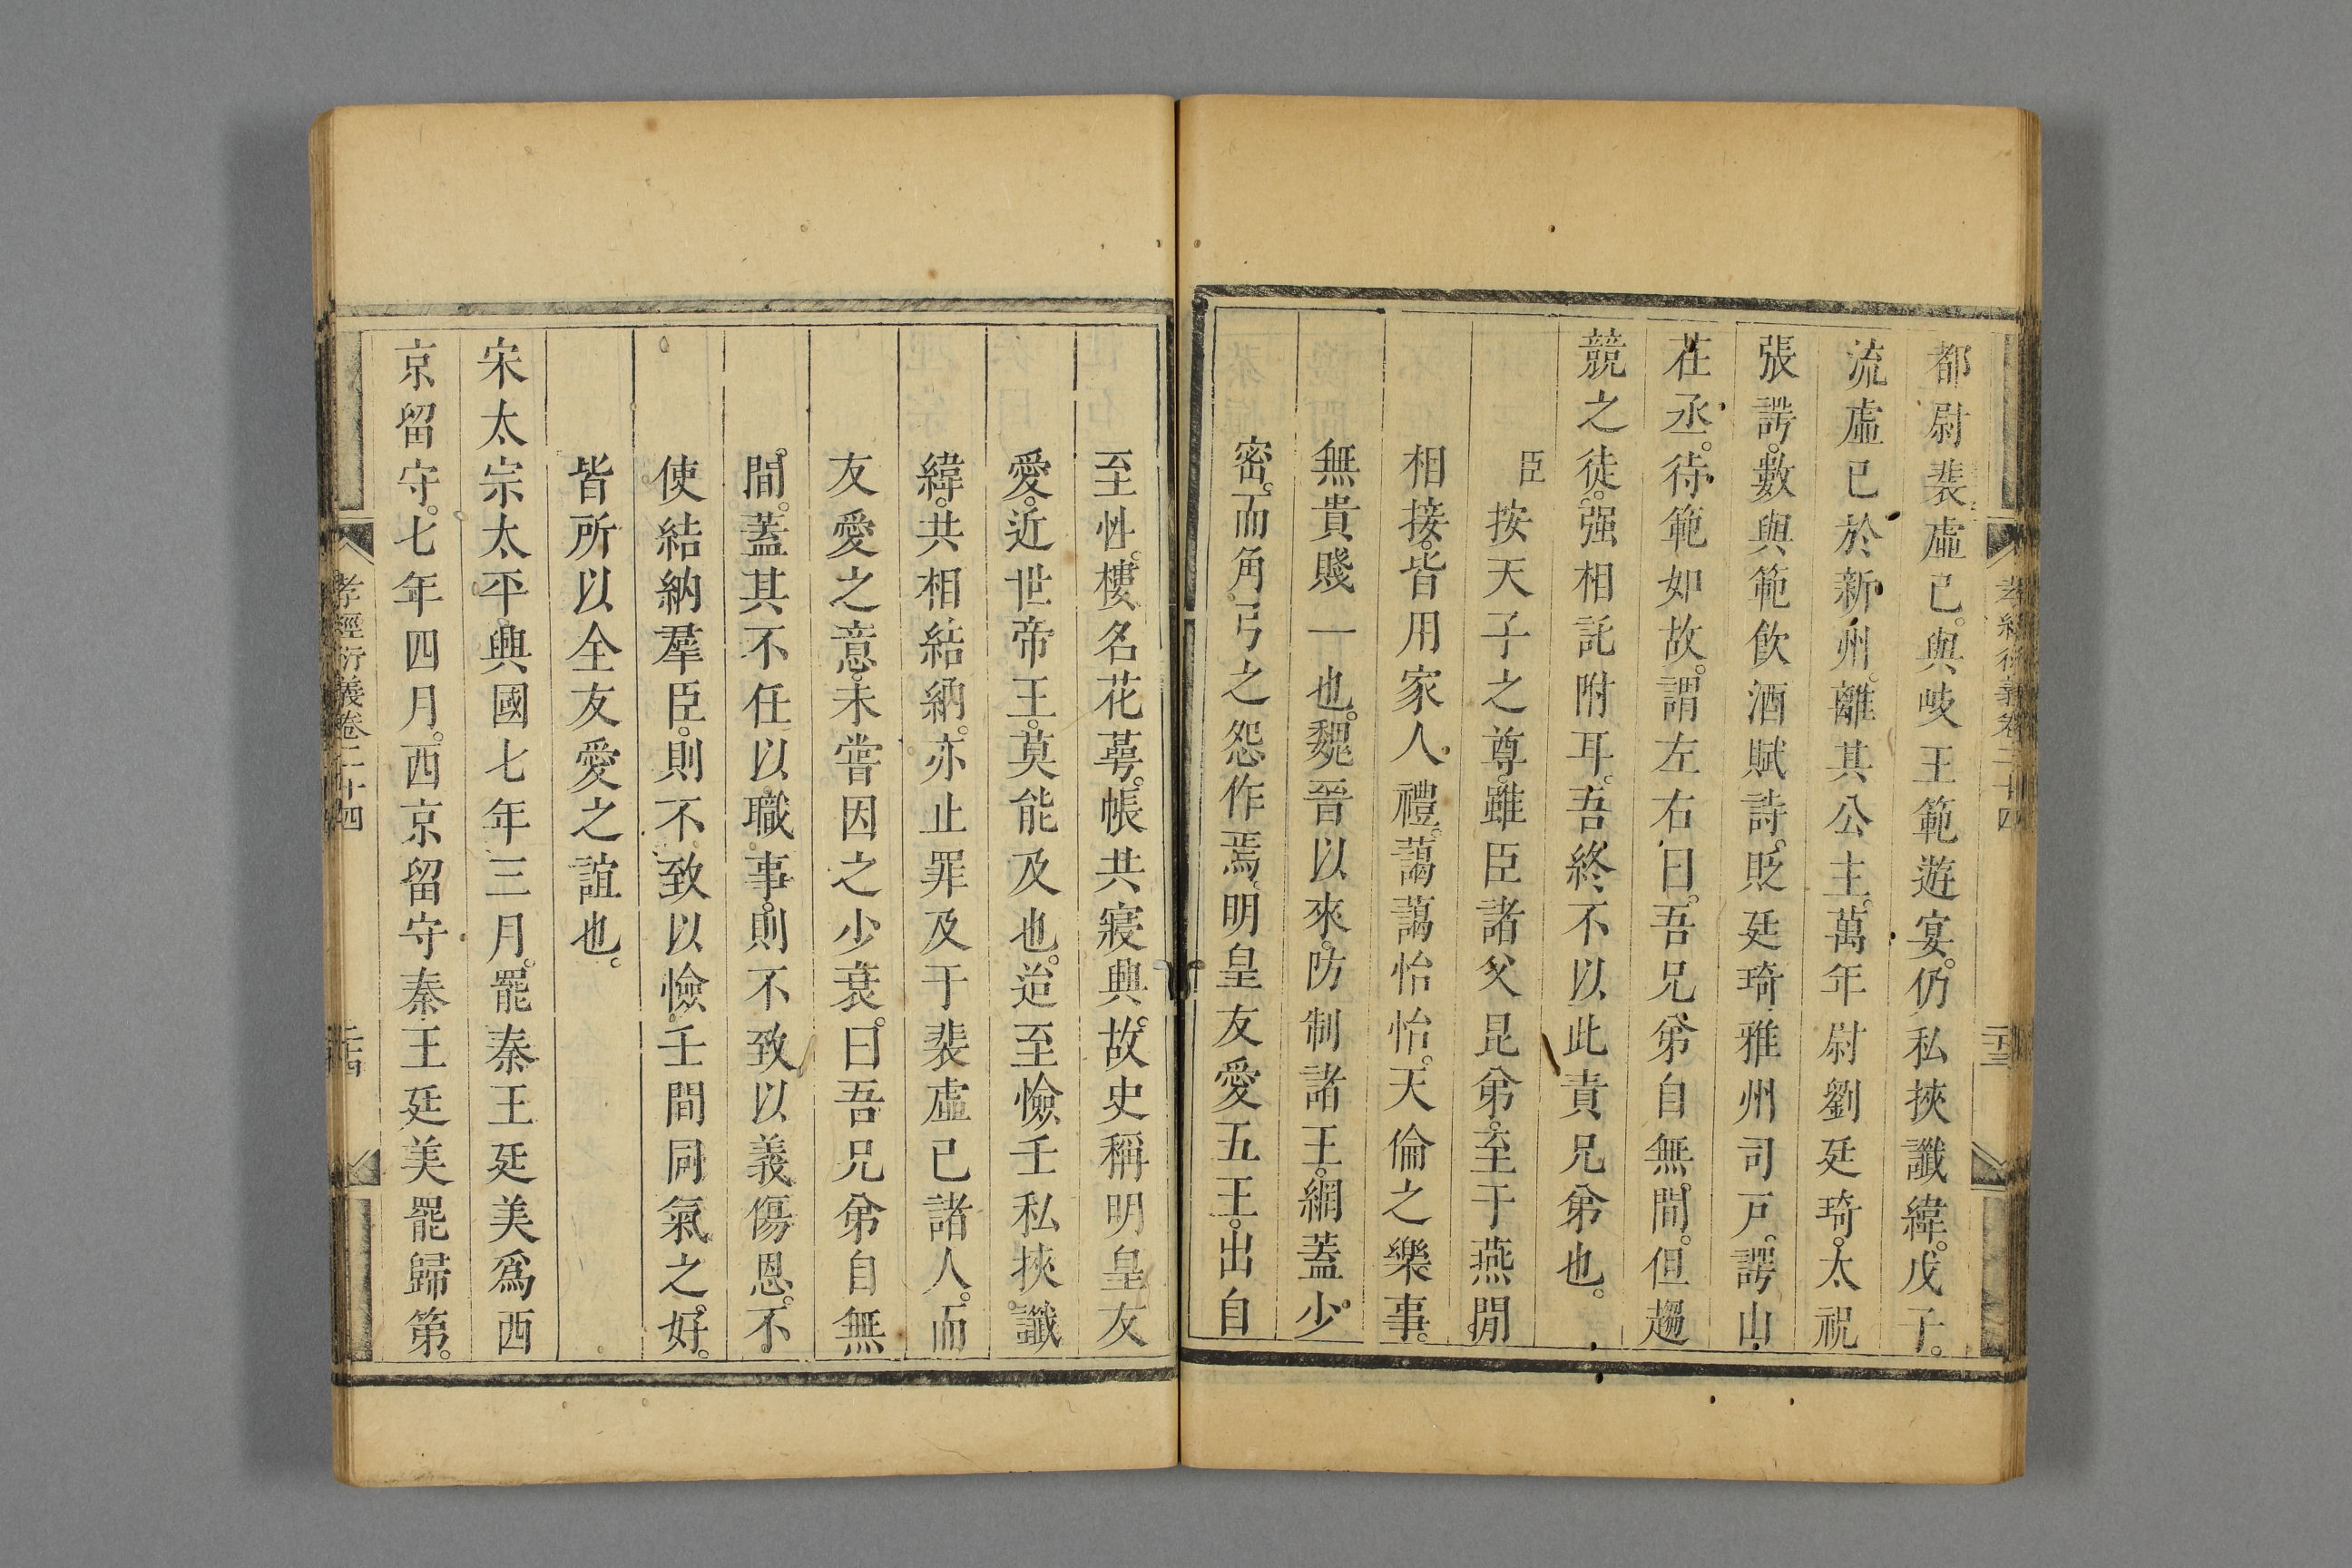 孝經衍義卷二十四
二十三
都尉裴虛己。與岐王範遊宴。仍私挾讖緯。戊子。
流虛已於新州。離其公主。萬年尉劉廷琦。太祝
張諤。數與範飲酒賦詩。貶廷琦雅州司戸。諤山
茌丞。待範如故。謂左右曰。吾兄弟自無間。但趨
競之徒。强相託附耳。吾終不以此責兄弟也。
臣按天子之尊。雖臣諸父昆弟。至于燕閒
相接。皆用家人禮。藹藹怡怡。天倫之樂事。
無貴賤一也。魏晉以來。防制諸王。網蓋少
密。而角弓之怨作焉。明皇友愛五王。出自
至性。樓名花萼。帳共寢興。故史稱明皇友
愛。近世帝王。莫能及也。迨至憸壬私挾。讖
緯。共相結納。亦止罪及于裴虛已諸人。而
友愛之意。未嘗因之少衰。曰吾兄弟自無
間。蓋其不任以職事。則不致以義傷恩。不
使結納羣臣。則不致以憸壬間同氣之好。
皆所以全友愛之誼也。
宋太宗太平興國七年三月。罷秦王廷美爲西
京留守。七年四月。西京留守秦王廷美罷歸第。
孝經衍義卷二十四
二十四